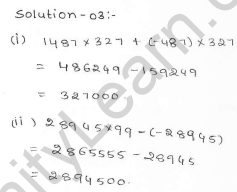 Solution-03:-
(i) 1487 × 327 + (-487) × 327
= 486249 - 159249
= 327000
(ii) 28945×99 - (-28945)
= 2865555 - 28945
= 2894500.